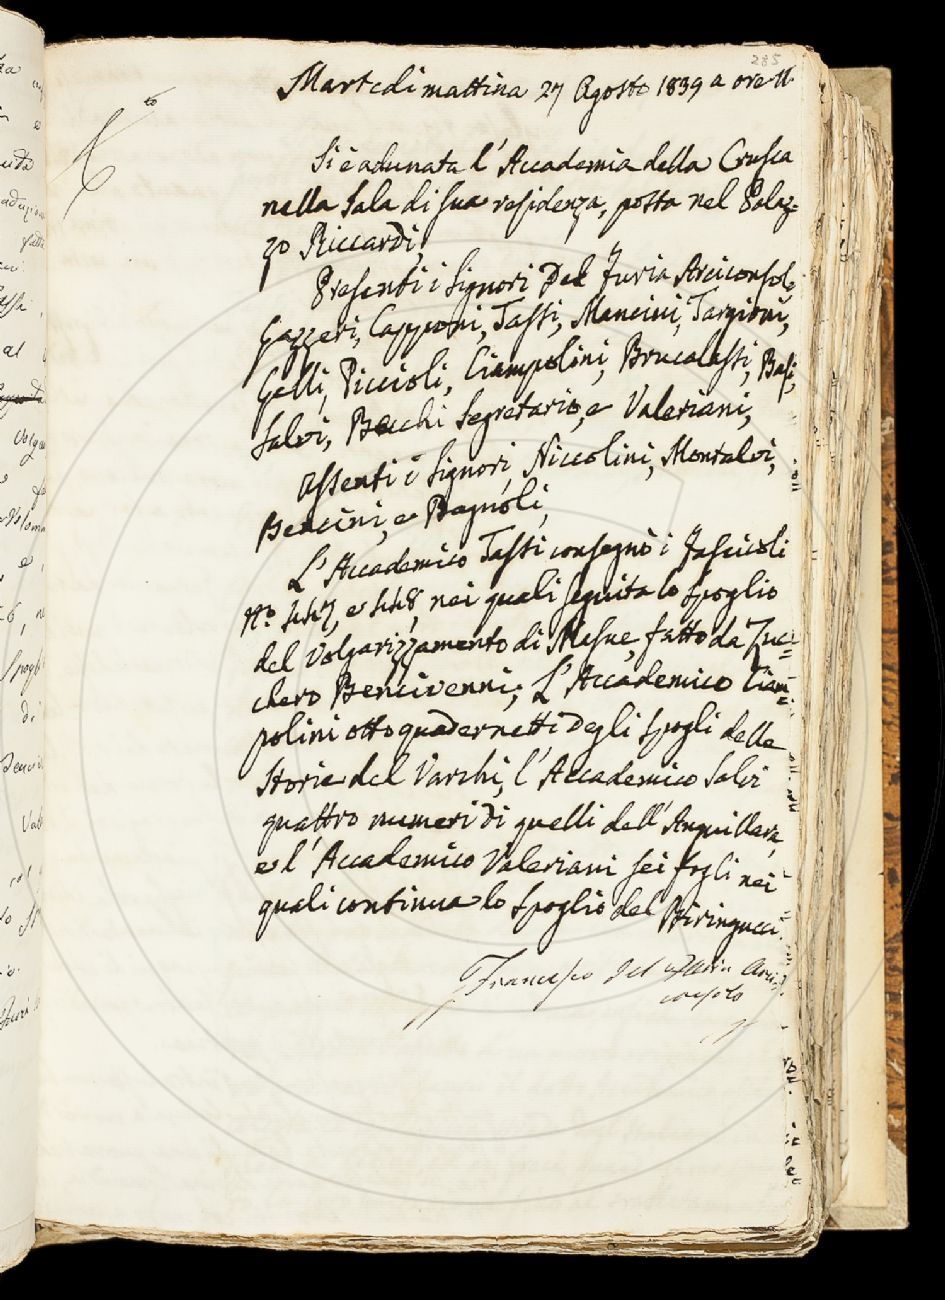 285
Martedi mattina 27 Agosto 1839 a ore 11.
Si è adunata l'Accademia della Crusca
nella Sala di sua residenza, posta nel Palaz=
zo Riccardi,
Presenti i Signori Del Furia Arciconsolo
Gazzeri, Capponi, Tassi, Mancini, Targioni,
Gelli, Piccioli, Ciampolini, Brucalassi, Basi,
Salvi, Becchi Segretario, e Valeriani,
Assenti i Signori, Niccolini, Montalvi,
Bencini, e Bagnoli,
L'Accademico Tassi consegnò i Fascicoli
N.º 447, e 448, nei quali seguita lo Spoglio
del Volgarizzamento di Mesue, fatto da Zuc=
chero Bencivenni; L'Accademico Ciam=
polini otto quadernetti degli Spogli delle
Storie del Varchi, l'Accademico Salvi
quattro numeri di quelli dell'Anguillara,
e l'Accademico Valeriani sei fogli nei
quali continua lo Spoglio del Biringucci.
Francesco del Furia Arci=
consolo